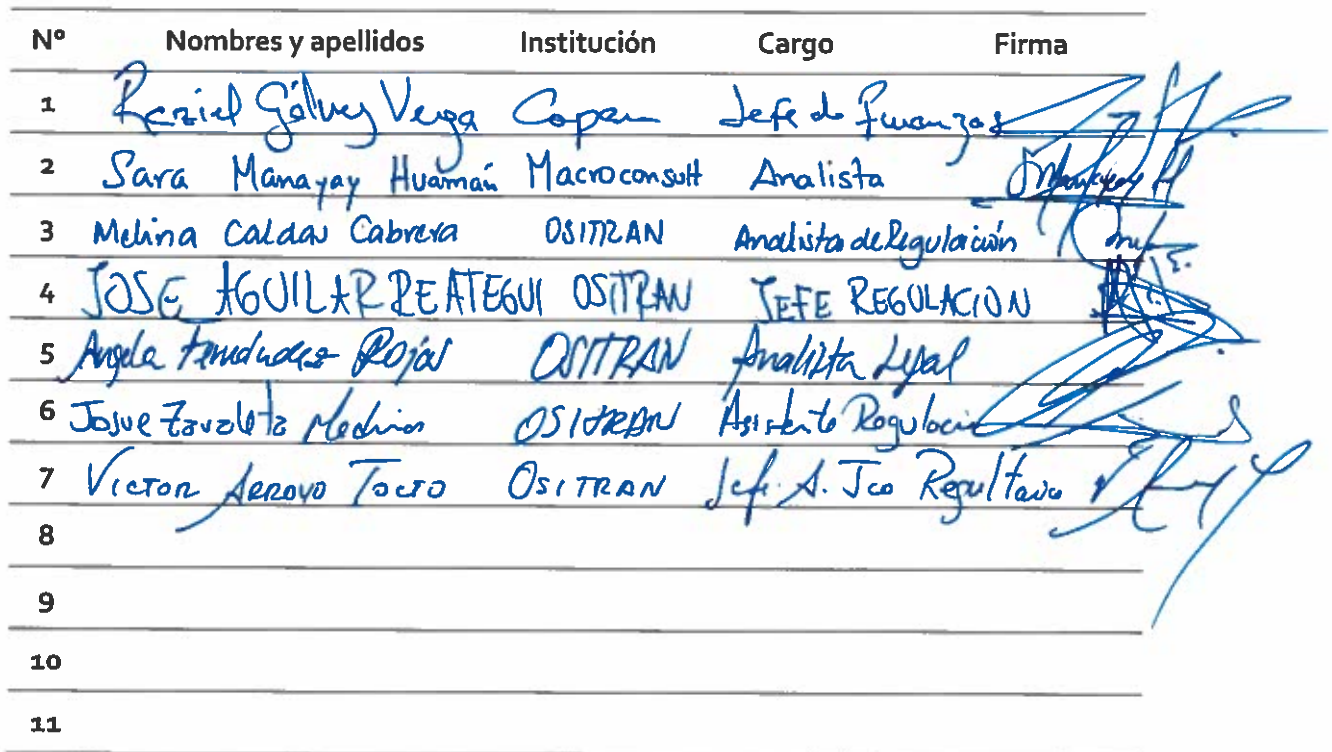 Nº Nombres y apellidos Institución Cargo Firma
1 Raziel Gálvez Vega Copam Jefe de Finanzas
2 Sara Manayay Huamán Macroconsult Analista
3 Melina Caldas Cabrera OSITRAN Analista de Regulación
4 JOSE AGUILAR REATEGUI OSITRAN JEFE REGULACION
5 Angela Fernández Rojas OSITRAN Analista Legal
6 Josue Zavaleta Medina OSITRAN Asistente Regulación
7 Victor Arroyo Tocto OSITRAN Jefe A. Jco Regultario
8
9
10
11